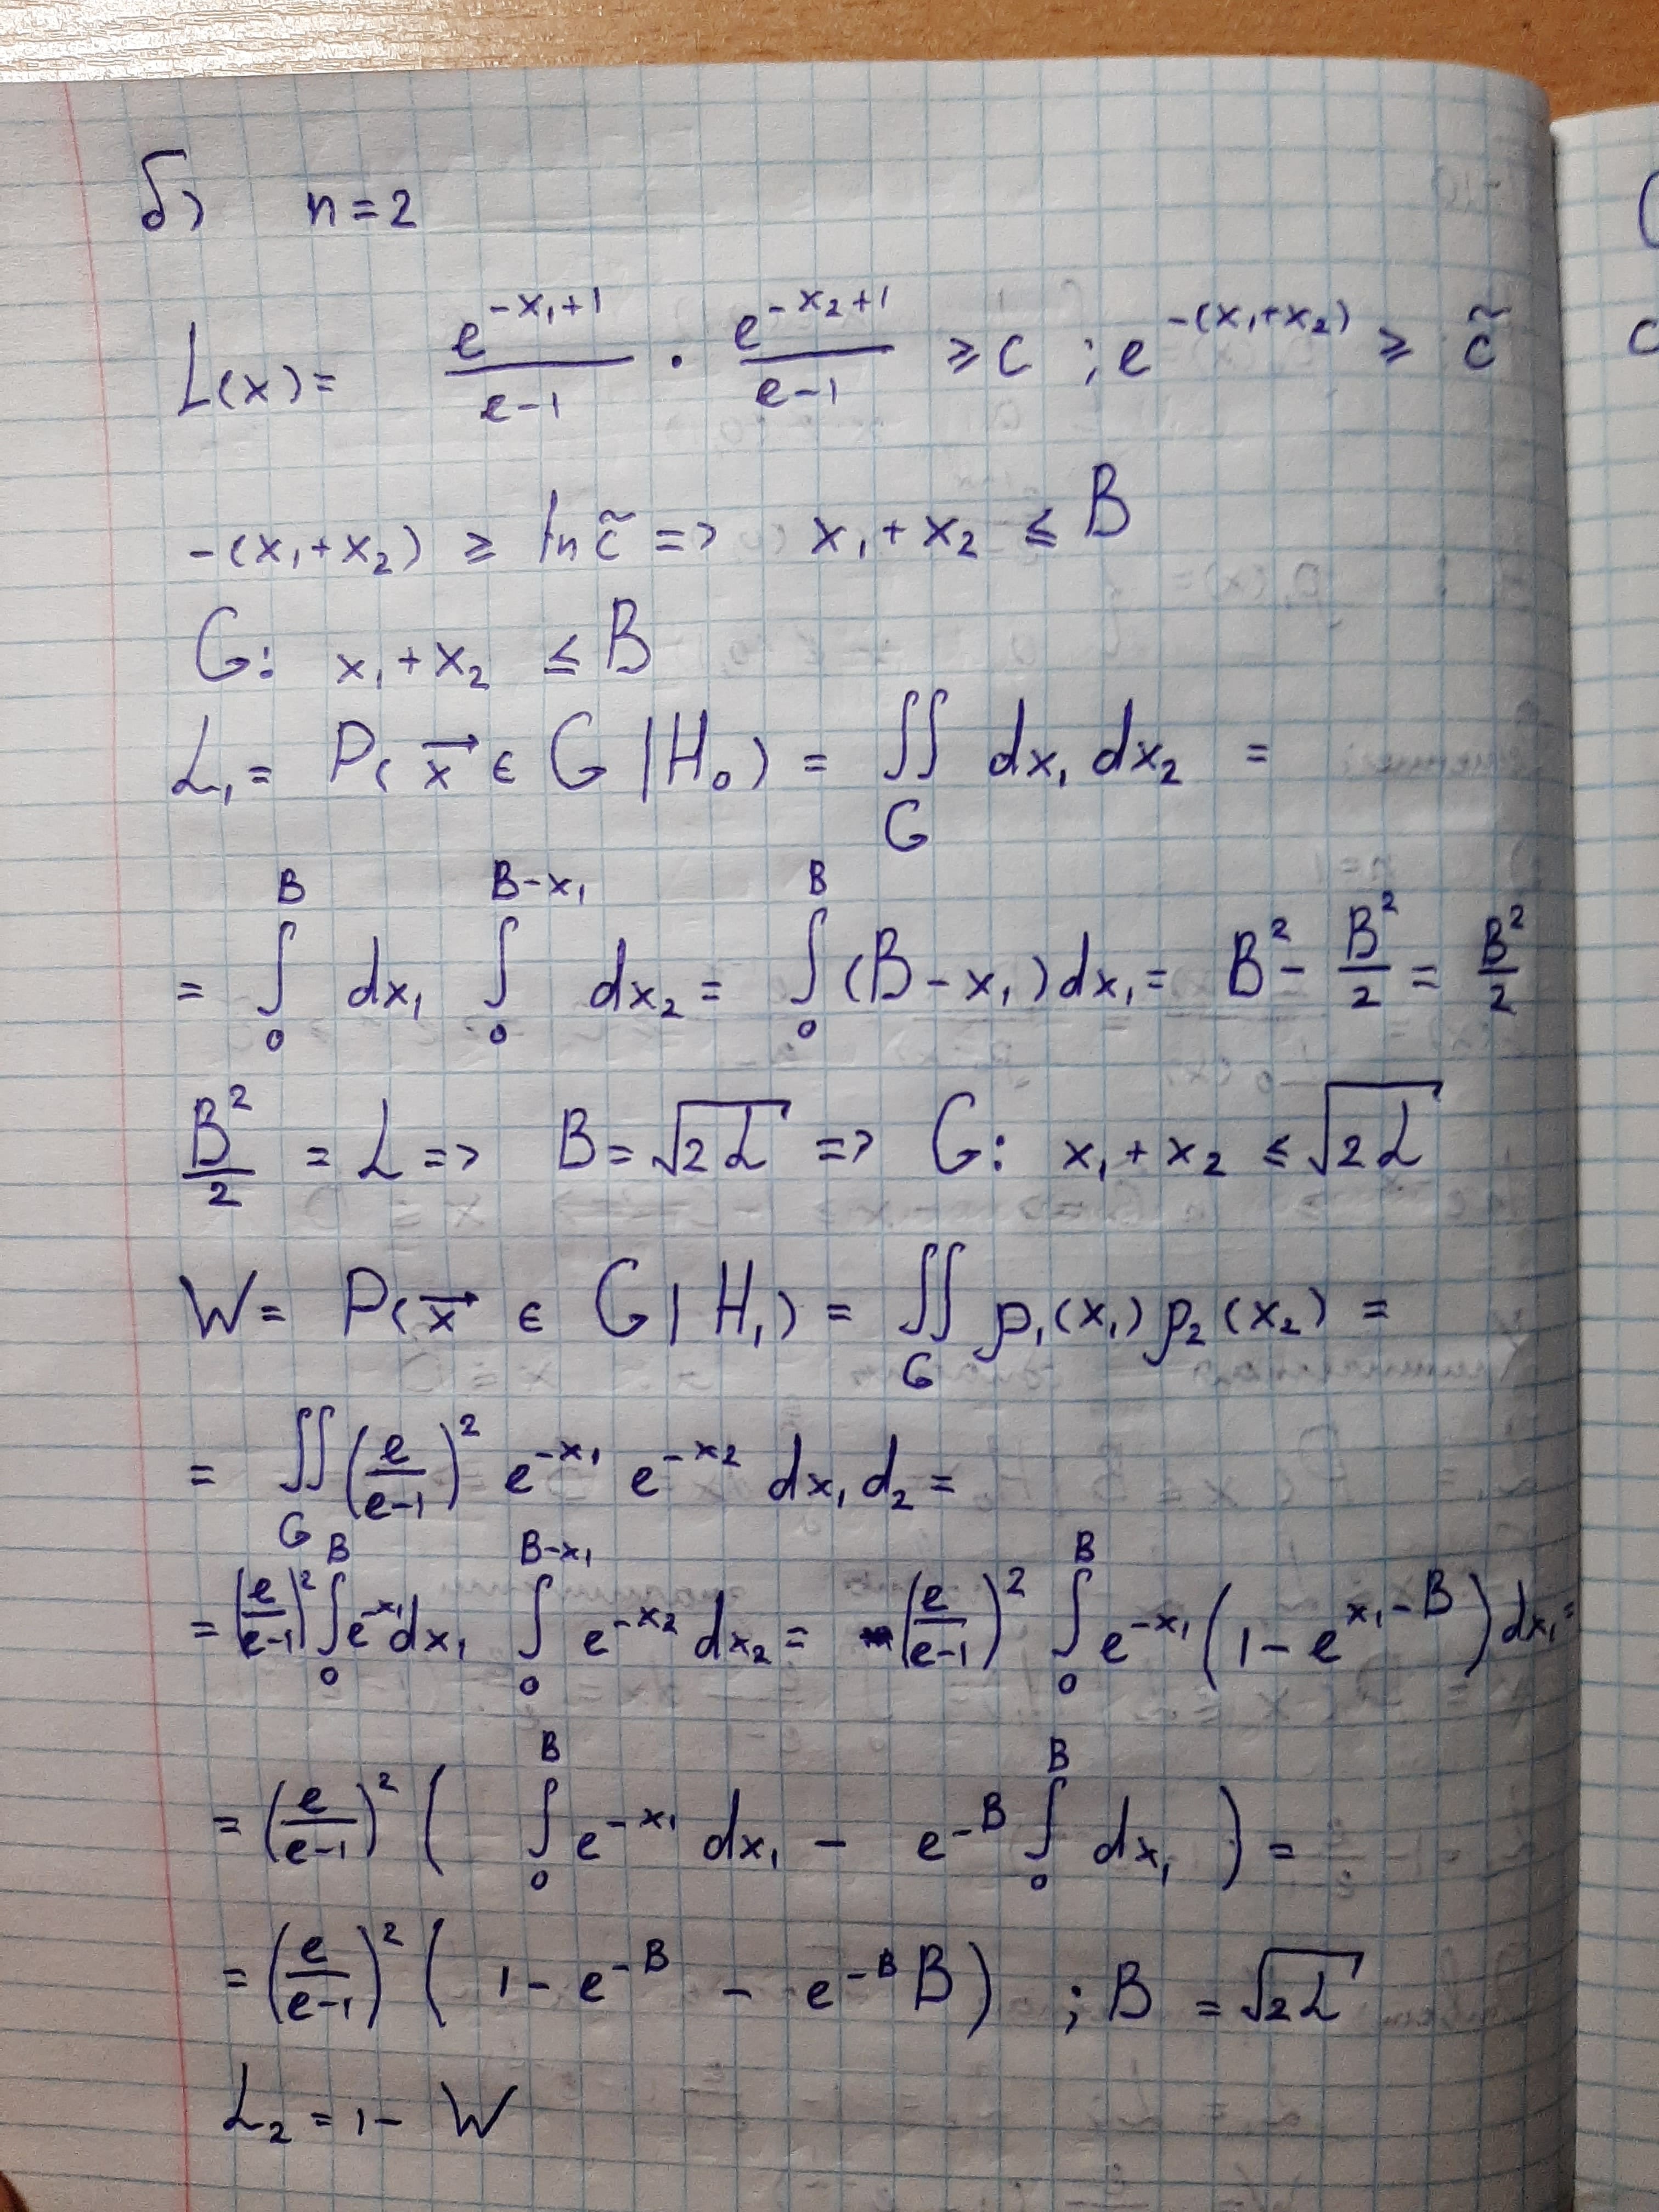 б) n = 2
L(x) = e^{-x₁+1}/(e-1) · e^{-x₂+1}/(e-1) ≥ c ; e^{-(x₁+x₂)} ≥ c̃
-(x₁+x₂) ≥ ln c̃ => x₁ + x₂ ≤ B
G: x₁ + x₂ ≤ B
α₁ = P(x⃗ ∈ G | H₀) = ∬_G dx₁ dx₂ =
= ∫₀^B dx₁ ∫₀^{B-x₁} dx₂ = ∫₀^B (B - x₁) dx₁ = B² - B²/2 = B²/2
B²/2 = α => B = √(2α) => G: x₁ + x₂ ≤ √(2α)
W = P(x⃗ ∈ G | H₁) = ∬_G p₁(x₁) p₂(x₂) =
= ∬_G (e/(e-1))² e^{-x₁} e^{-x₂} dx₁ d₂ =
= (e/(e-1))² ∫₀^B e^{-x₁} dx₁ ∫₀^{B-x₁} e^{-x₂} dx₂ = (e/(e-1))² ∫₀^B e^{-x₁} (1 - e^{x₁-B}) dx₁ =
= (e/(e-1))² ( ∫₀^B e^{-x₁} dx₁ - e^{-B} ∫₀^B dx₁ ) =
= (e/(e-1))² ( 1 - e^{-B} - e^{-B} B ) ; B = √(2α)
α₂ = 1 - W